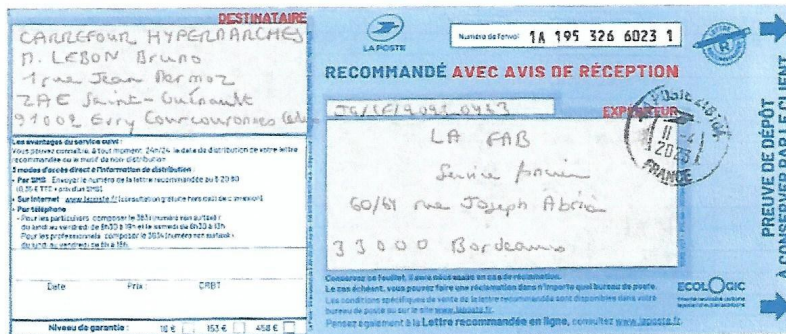 DESTINATAIRE
CARREFOUR HYPERMARCHES
M. LEBON Bruno
1 rue Jean Mermoz
ZAE Saint-Guénault
91002 Evry Courcouronnes
Les avantages du service suivi :
Vous pouvez connaître, à tout moment, 24h/24, la date de distribution de votre lettre
recommandée ou le motif de non distribution
3 modes d'accès direct à l'information de distribution
• Par SMS Envoyer le numéro de la lettre recommandée au 6 20 80
(0,35 € TTC + prix d'un SMS)
• Sur Internet www.laposte.fr (consultation gratuite hors coût de connexion)
• Par téléphone
- Pour les particuliers, composer le 3631 (numéro non surtaxé)
du lundi au vendredi de 8h30 à 19h et le samedi de 8h30 à 13h
- Pour les professionnels, composer le 3634 (numéro non surtaxé)
du lundi au vendredi de 8h à 18h
Date Prix : CRBT
Niveau de garantie : 16 € 153 € 458 €
LA POSTE
Numéro de l'envoi : 1A 195 326 6023 1
LETTRE RECOMMANDÉE
R
RECOMMANDÉ AVEC AVIS DE RÉCEPTION
EXPÉDITEUR
LA FAB
Service
60/64 rue Joseph Abria
33000 Bordeaux
11-4
2023
FRANCE
Conservez ce feuillet, il sera nécessaire en cas de réclamation.
Le cas échéant, vous pouvez faire une réclamation dans n'importe quel bureau de poste.
Les conditions spécifiques de vente de la lettre recommandée sont disponibles dans votre
bureau de poste ou sur le site www.laposte.fr.
Pensez également à la Lettre recommandée en ligne, consultez www.laposte.fr.
ECOLOGIC
PREUVE DE DÉPÔT
À CONSERVER PAR LE CLIENT